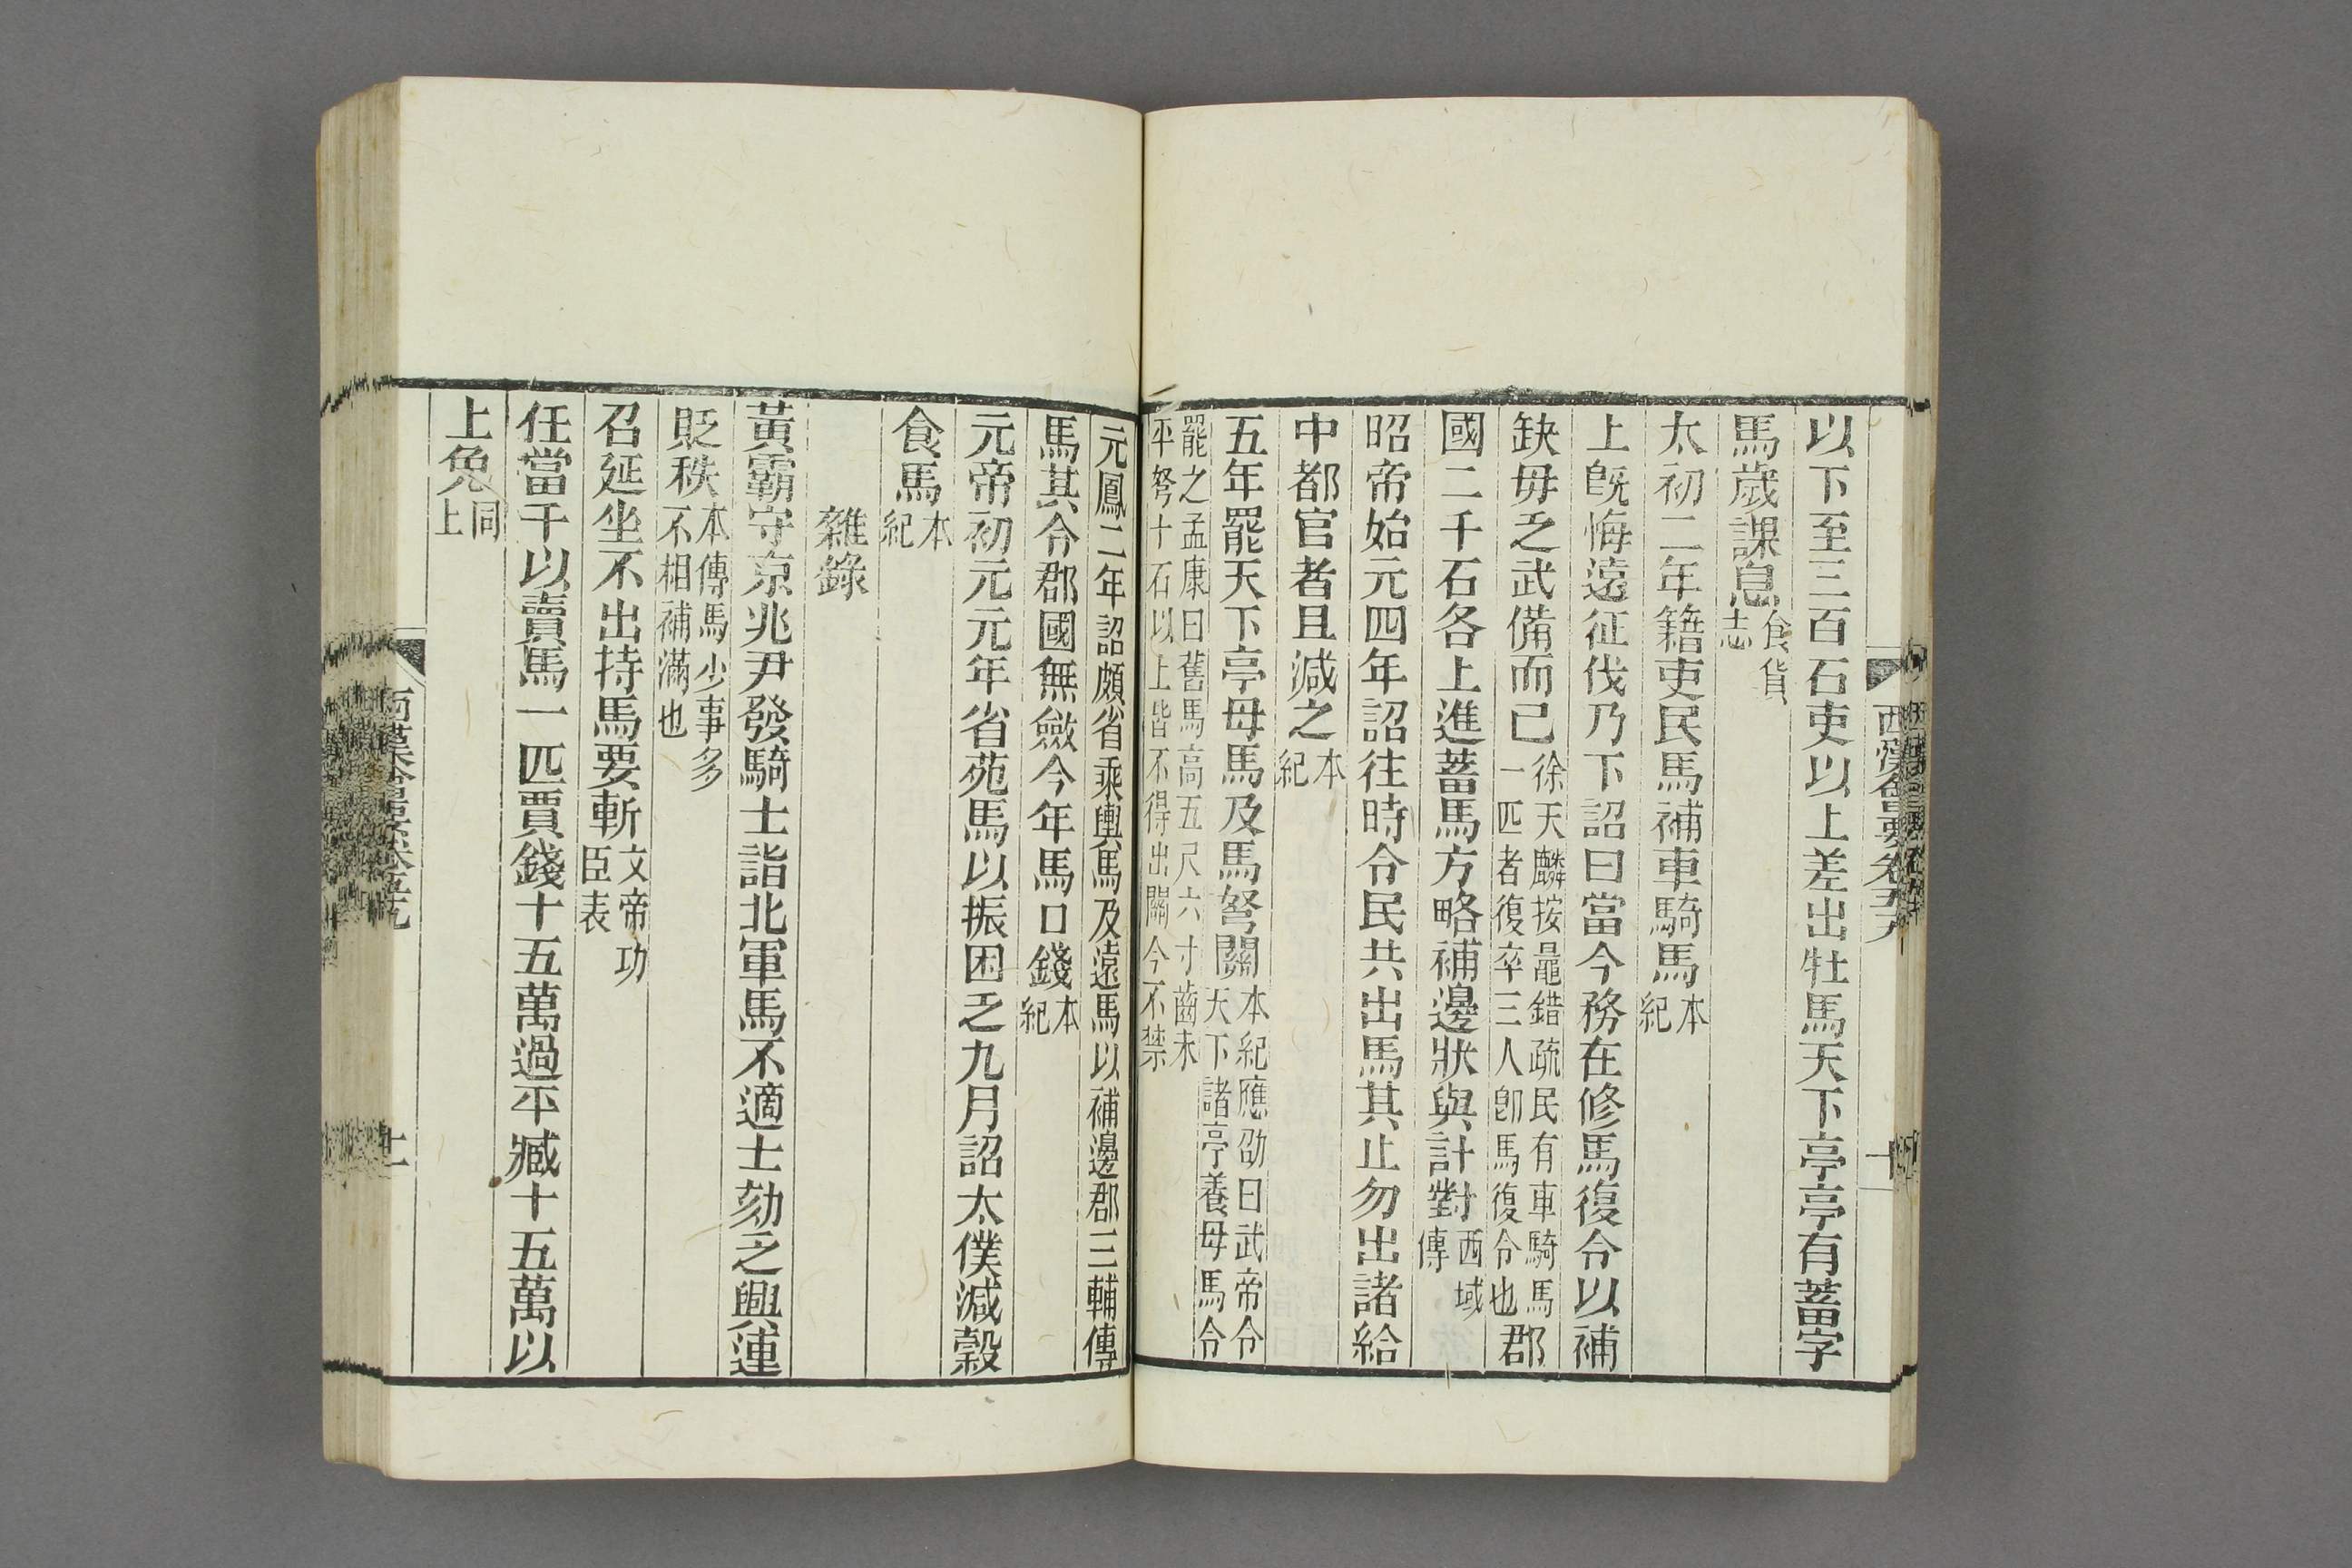 西漢會要卷五十九
十
以下至三百石吏以上差出牡馬天下亭亭有蓄字
馬歲課息食貨志
太初二年籍吏民馬補車騎馬本紀
上旣悔遠征伐乃下詔曰當今務在修馬復令以補
缺毋乏武備而已徐天麟按鼂錯疏民有車騎馬一匹者復卒三人卽馬復令也郡
國二千石各上進蓄馬方略補邊狀與計對西域傳
昭帝始元四年詔往時令民共出馬其止勿出諸給
中都官者且減之本紀
五年罷天下亭母馬及馬弩關本紀應劭曰武帝令天下諸亭養母馬令
罷之孟康曰舊馬高五尺六寸齒未平弩十石以上皆不得出關今不禁
元鳳二年詔頗省乘輿馬及遠馬以補邊郡三輔傳
馬其令郡國無斂今年馬口錢本紀
元帝初元元年省苑馬以振困乏九月詔太僕減穀
食馬本紀
雜錄
黃霸守京兆尹發騎士詣北軍馬不適士劾乏興連
貶秩本傳馬少事多不相補滿也
召延坐不出持馬要斬文帝功臣表
任當千以賣馬一匹賈錢十五萬過平臧十五萬以
上免同上
西漢會要卷五十九
十一